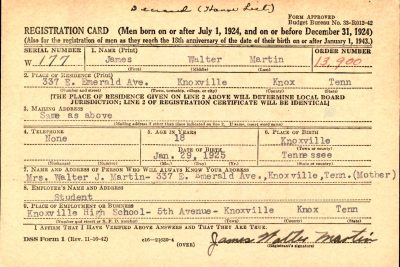 FORM APPROVED
Budget Bureau No. 33-R012-42
REGISTRATION CARD (Men born on or after July 1, 1924, and on or before December 31, 1924)
(Also for the registration of men as they reach the 18th anniversary of the date of their birth on or after January 1, 1943.)
SERIAL NUMBER 1. NAME (Print) ORDER NUMBER
W 177 James Walter Martin 13,900
(First) (Middle) (Last)
2. PLACE OF RESIDENCE (Print)
337 E. Emerald Ave. Knoxville Knox Tenn
(Number and street) (Town, township, village, or city) (County) (State)
[THE PLACE OF RESIDENCE GIVEN ON LINE 2 ABOVE WILL DETERMINE LOCAL BOARD
JURISDICTION; LINE 2 OF REGISTRATION CERTIFICATE WILL BE IDENTICAL]
3. MAILING ADDRESS
Same as above
(Mailing address if other than place indicated on line 2. If same, insert word same)
4. TELEPHONE 5. AGE IN YEARS 6. PLACE OF BIRTH
None 18 Knoxville
DATE OF BIRTH
Jan. 29, 1925 Tennessee
7. NAME AND ADDRESS OF PERSON WHO WILL ALWAYS KNOW YOUR ADDRESS
Mrs. Walter J. Martin- 337 E. Emerald Ave., Knoxville, Tenn. (Mother)
8. EMPLOYER'S NAME AND ADDRESS
Student
9. PLACE OF EMPLOYMENT OR BUSINESS
Knoxville High School- 5th Avenue- Knoxville Knox Tenn
(Number and street or R. F. D. number) (Town) (County) (State)
I AFFIRM THAT I HAVE VERIFIED ABOVE ANSWERS AND THAT THEY ARE TRUE.
DSS Form 1 (Rev. 11-16-42) (OVER) James Walter Martin
(Registrant's signature)